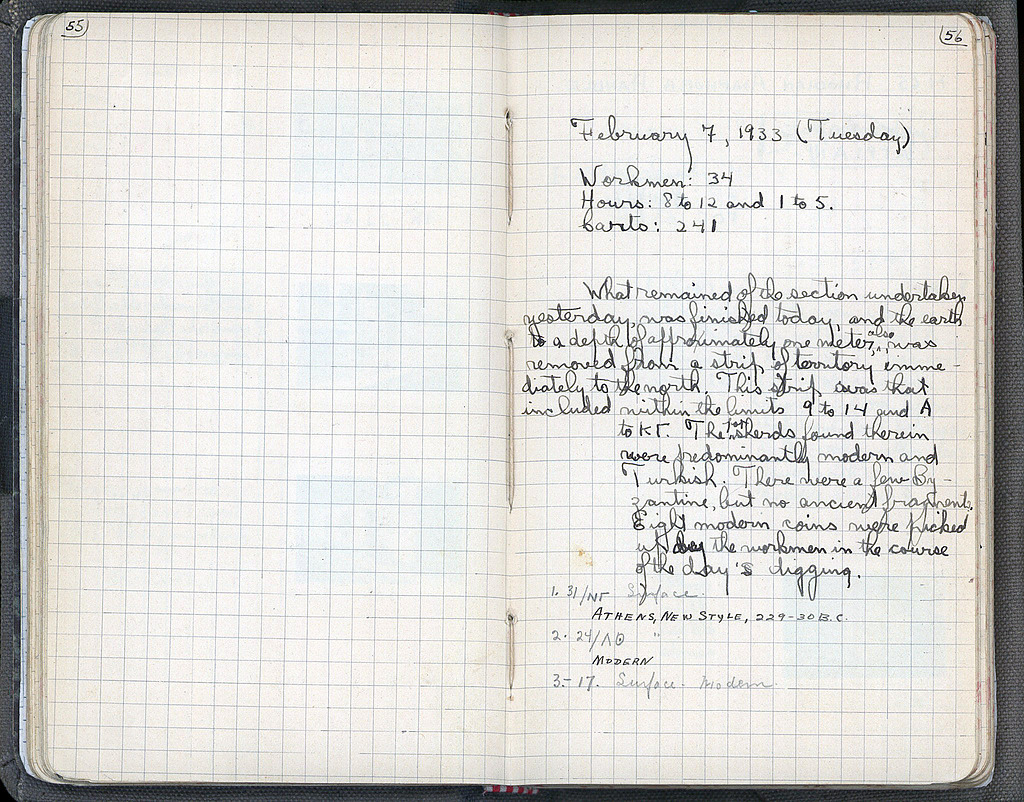 55
56
February 7, 1933 (Tuesday)
Workmen: 34
Hours: 8 to 12 and 1 to 5.
Carts: 241
What remained of the section undertaken
yesterday, was finished today, and the earth
to a depth of approximately one meter, also, was
removed from a strip of territory imme-
diately to the north. This strip was that
included within the limits 9 to 14 and A
to ΚΓ. The potsherds found therein
were predominantly modern and
Turkish. There were a few By-
zantine, but no ancient fragments.
Eight modern coins were picked
up by the workmen in the course
of the day's digging.
1. 31/ΝΓ Surface.
ATHENS, NEW STYLE, 229-30 B.C.
2. 24/ΛΘ "
MODERN
3.-17. Surface - Modern.